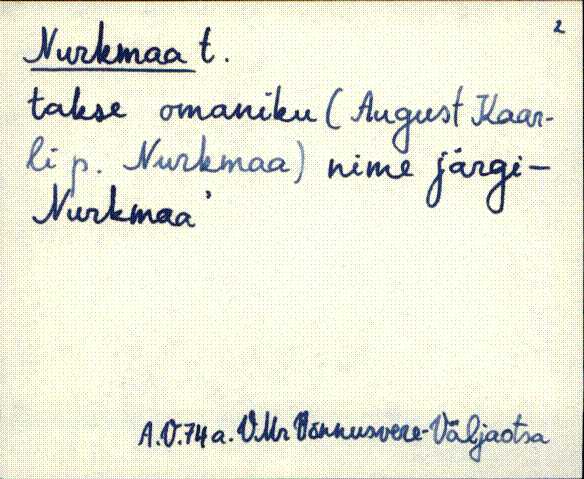 2
Nurkmaa t.
takse omaniku (August Kaar-
li p. Nurkmaa) nime järgi-
Nurkmaa'
A.V.74 a. V.Mr Võnnusvere-Väljaotsa